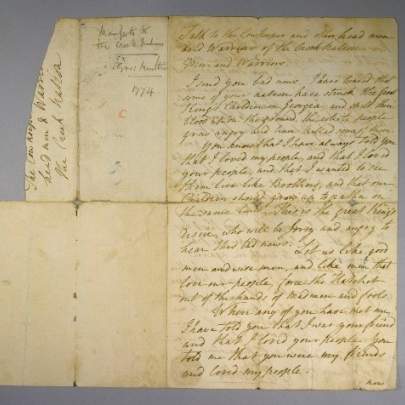 The Cowkeeper
head men & Warriors
the Creek Nation
to
the Creek Indians
1774
Talk to the Cowkeeper and other head men
and Warriors of the Creek Nation
Men and Warriors
I send you bad news. I have heard that
some of your nation have struck the great
Kings Children in Georgia and spilt their
blood upon the ground, the white people
grew angry and have killed some of them
You know that I have always told you
that I loved my people, and that I loved
your people, and that I wanted to see
them live like Brothers, and that our
Children should grow up together on
the same land. This is the great Kings
desire, who will be sorry and angry to
hear this bad news. Let us like good
men and wise men, and like men that
love our people, force the Hatchet
out of the hands of Madmen and fools.
When any of you have met me
I have told you that I was your friend
and that I loved your people. You
told me that you were my friends
and loved my people.
now